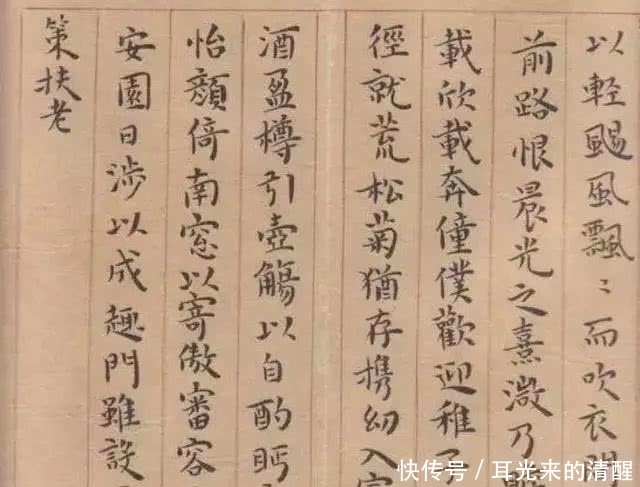 以輕颺風飄〻而吹衣
前路恨晨光之熹微乃
載欣載奔僮僕歡迎稚子
徑就荒松菊猶存携幼入
酒盈樽引壺觴以自酌眄
怡顏倚南窓以寄傲審容
安園日涉以成趣門雖設
策扶老
快传号 / 耳光来的清醒